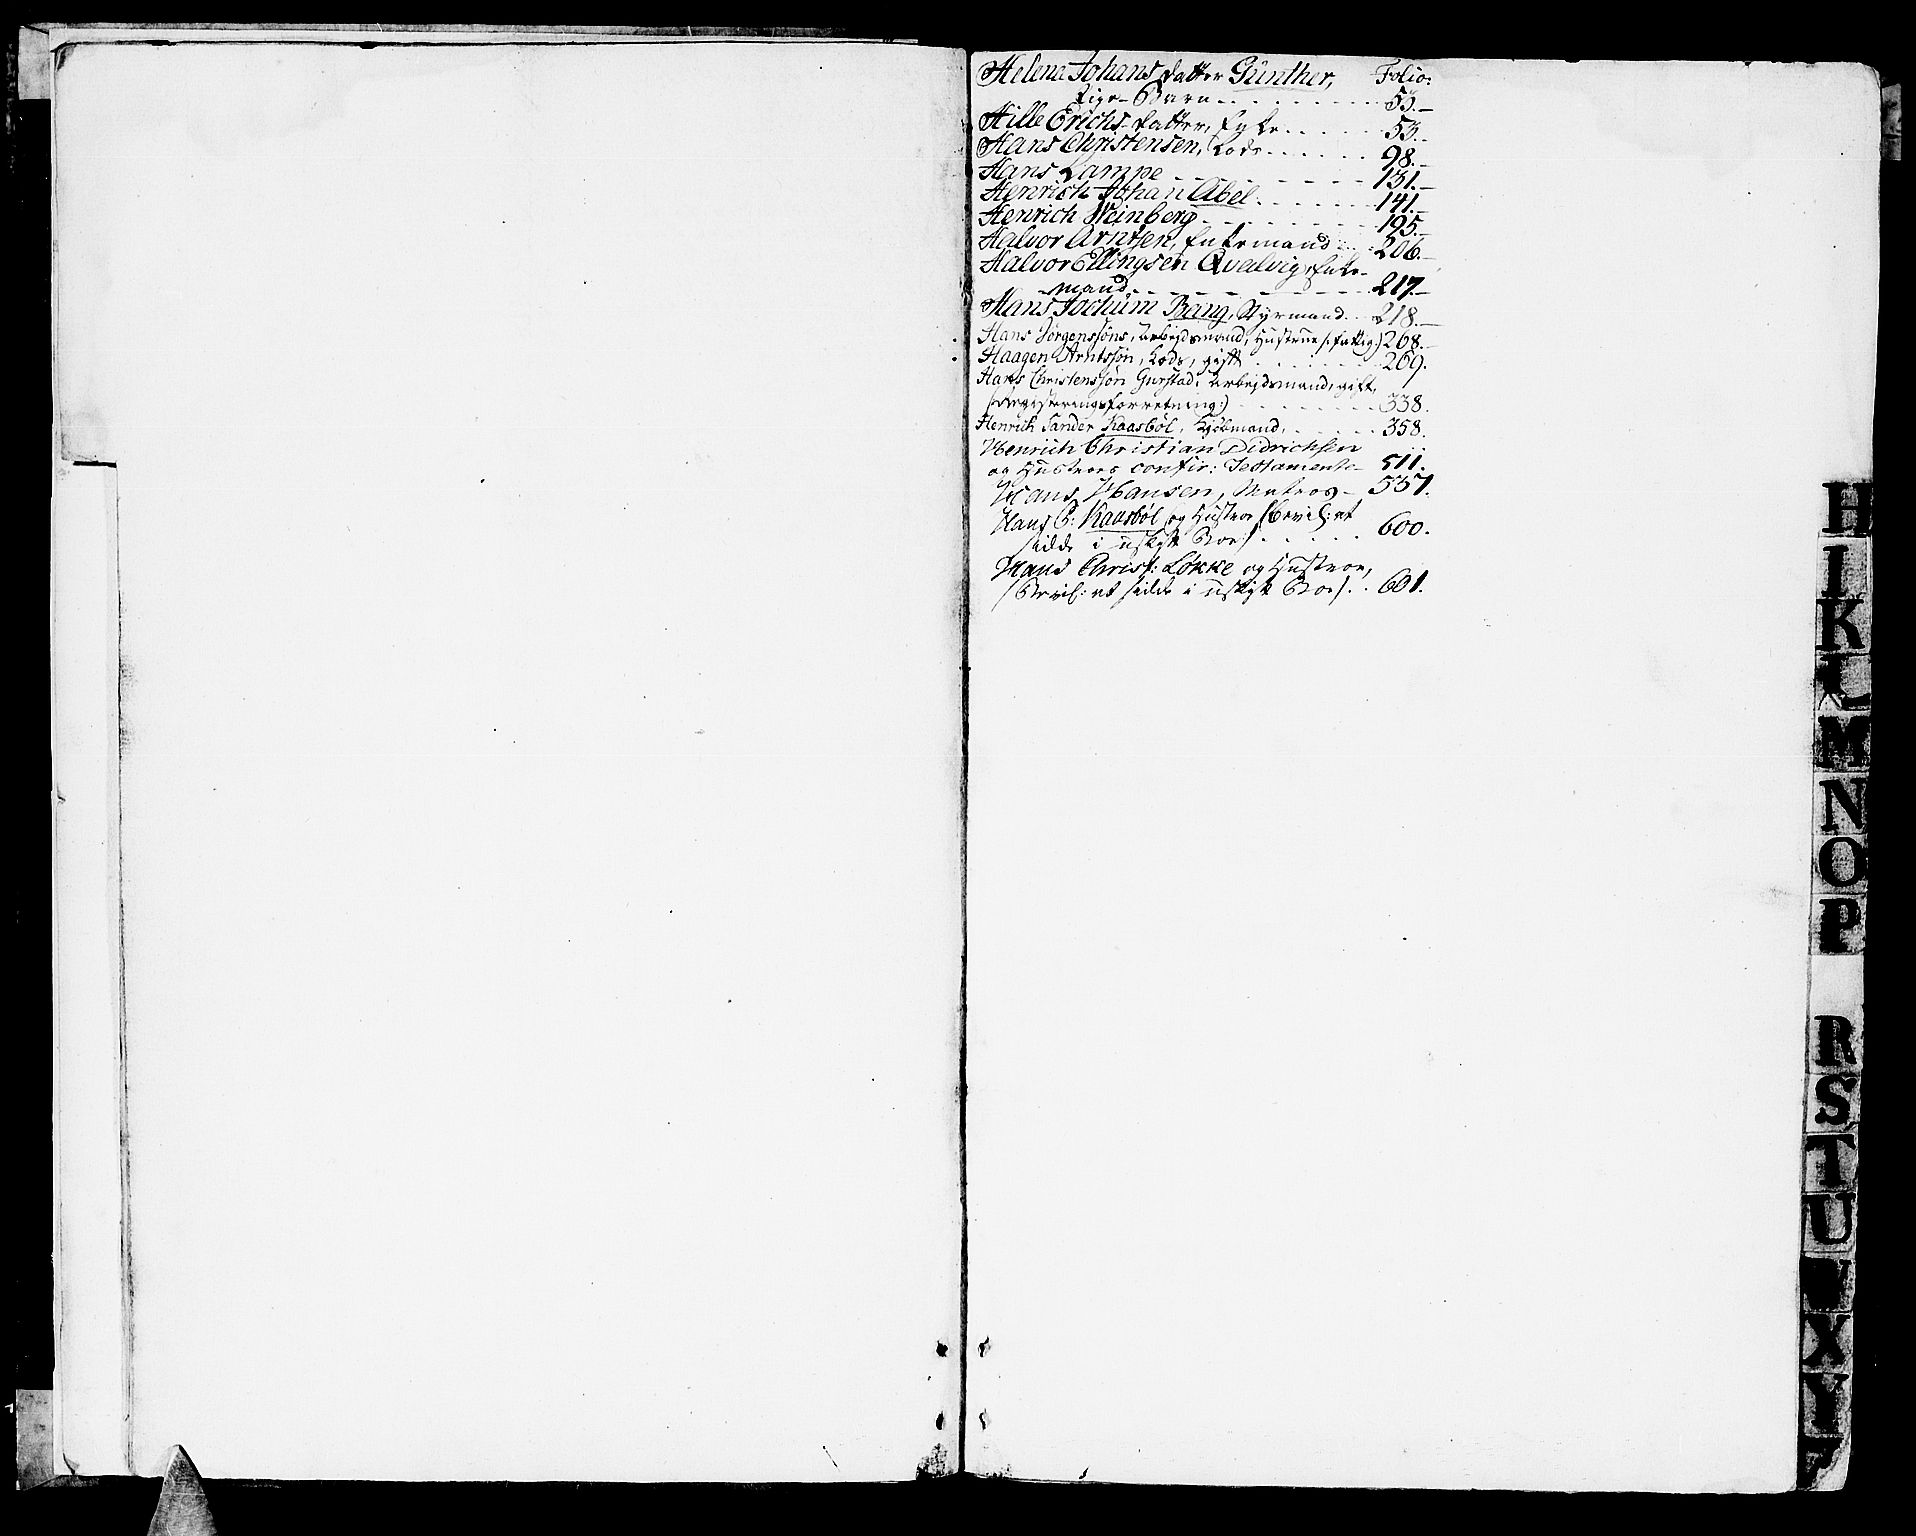 Helena Johans datter Günther, Folio:
Pige-Barn 53.
Hille Erichs-datter, Enke 53.
Hans Christensen, Lods 98.
Hans Lampe 131.
Henrich Johan Abel 141.
Henrich Weinberg 195.
Halvor Arntsen, Enkemand 206.
Halvor Ellingsen Qvalvig, Enke-
mand 217.
Hans Jochum Bang, Styrmand 218.
Hans Jørgenssøns, Arbejdsmand, Hustrue /:fattig:/ 268.
Haagen Arntssøn, Lods, gift 269.
Hans Christenssøn Gurstad, Arbejdsmand, gift,
/:Registeringsforretning:/ 338.
Henrich Sander Kaasbøl, Kjøbmand, 358.
Henrich Christian Didrichsen
og Hustrues confir: Testamente 511.
Hans Hansen, Matros 557.
Hans P: Kaasbøl og Hustroe /Bevil: at
sidde i uskift Boe/ 600.
Hans Christ: Løkke og Hustroe,
/Bevil: at sidde i uskift Boe/ 601.
H
I
K
L
M
N
O
P
R
S
T
U
X
Y